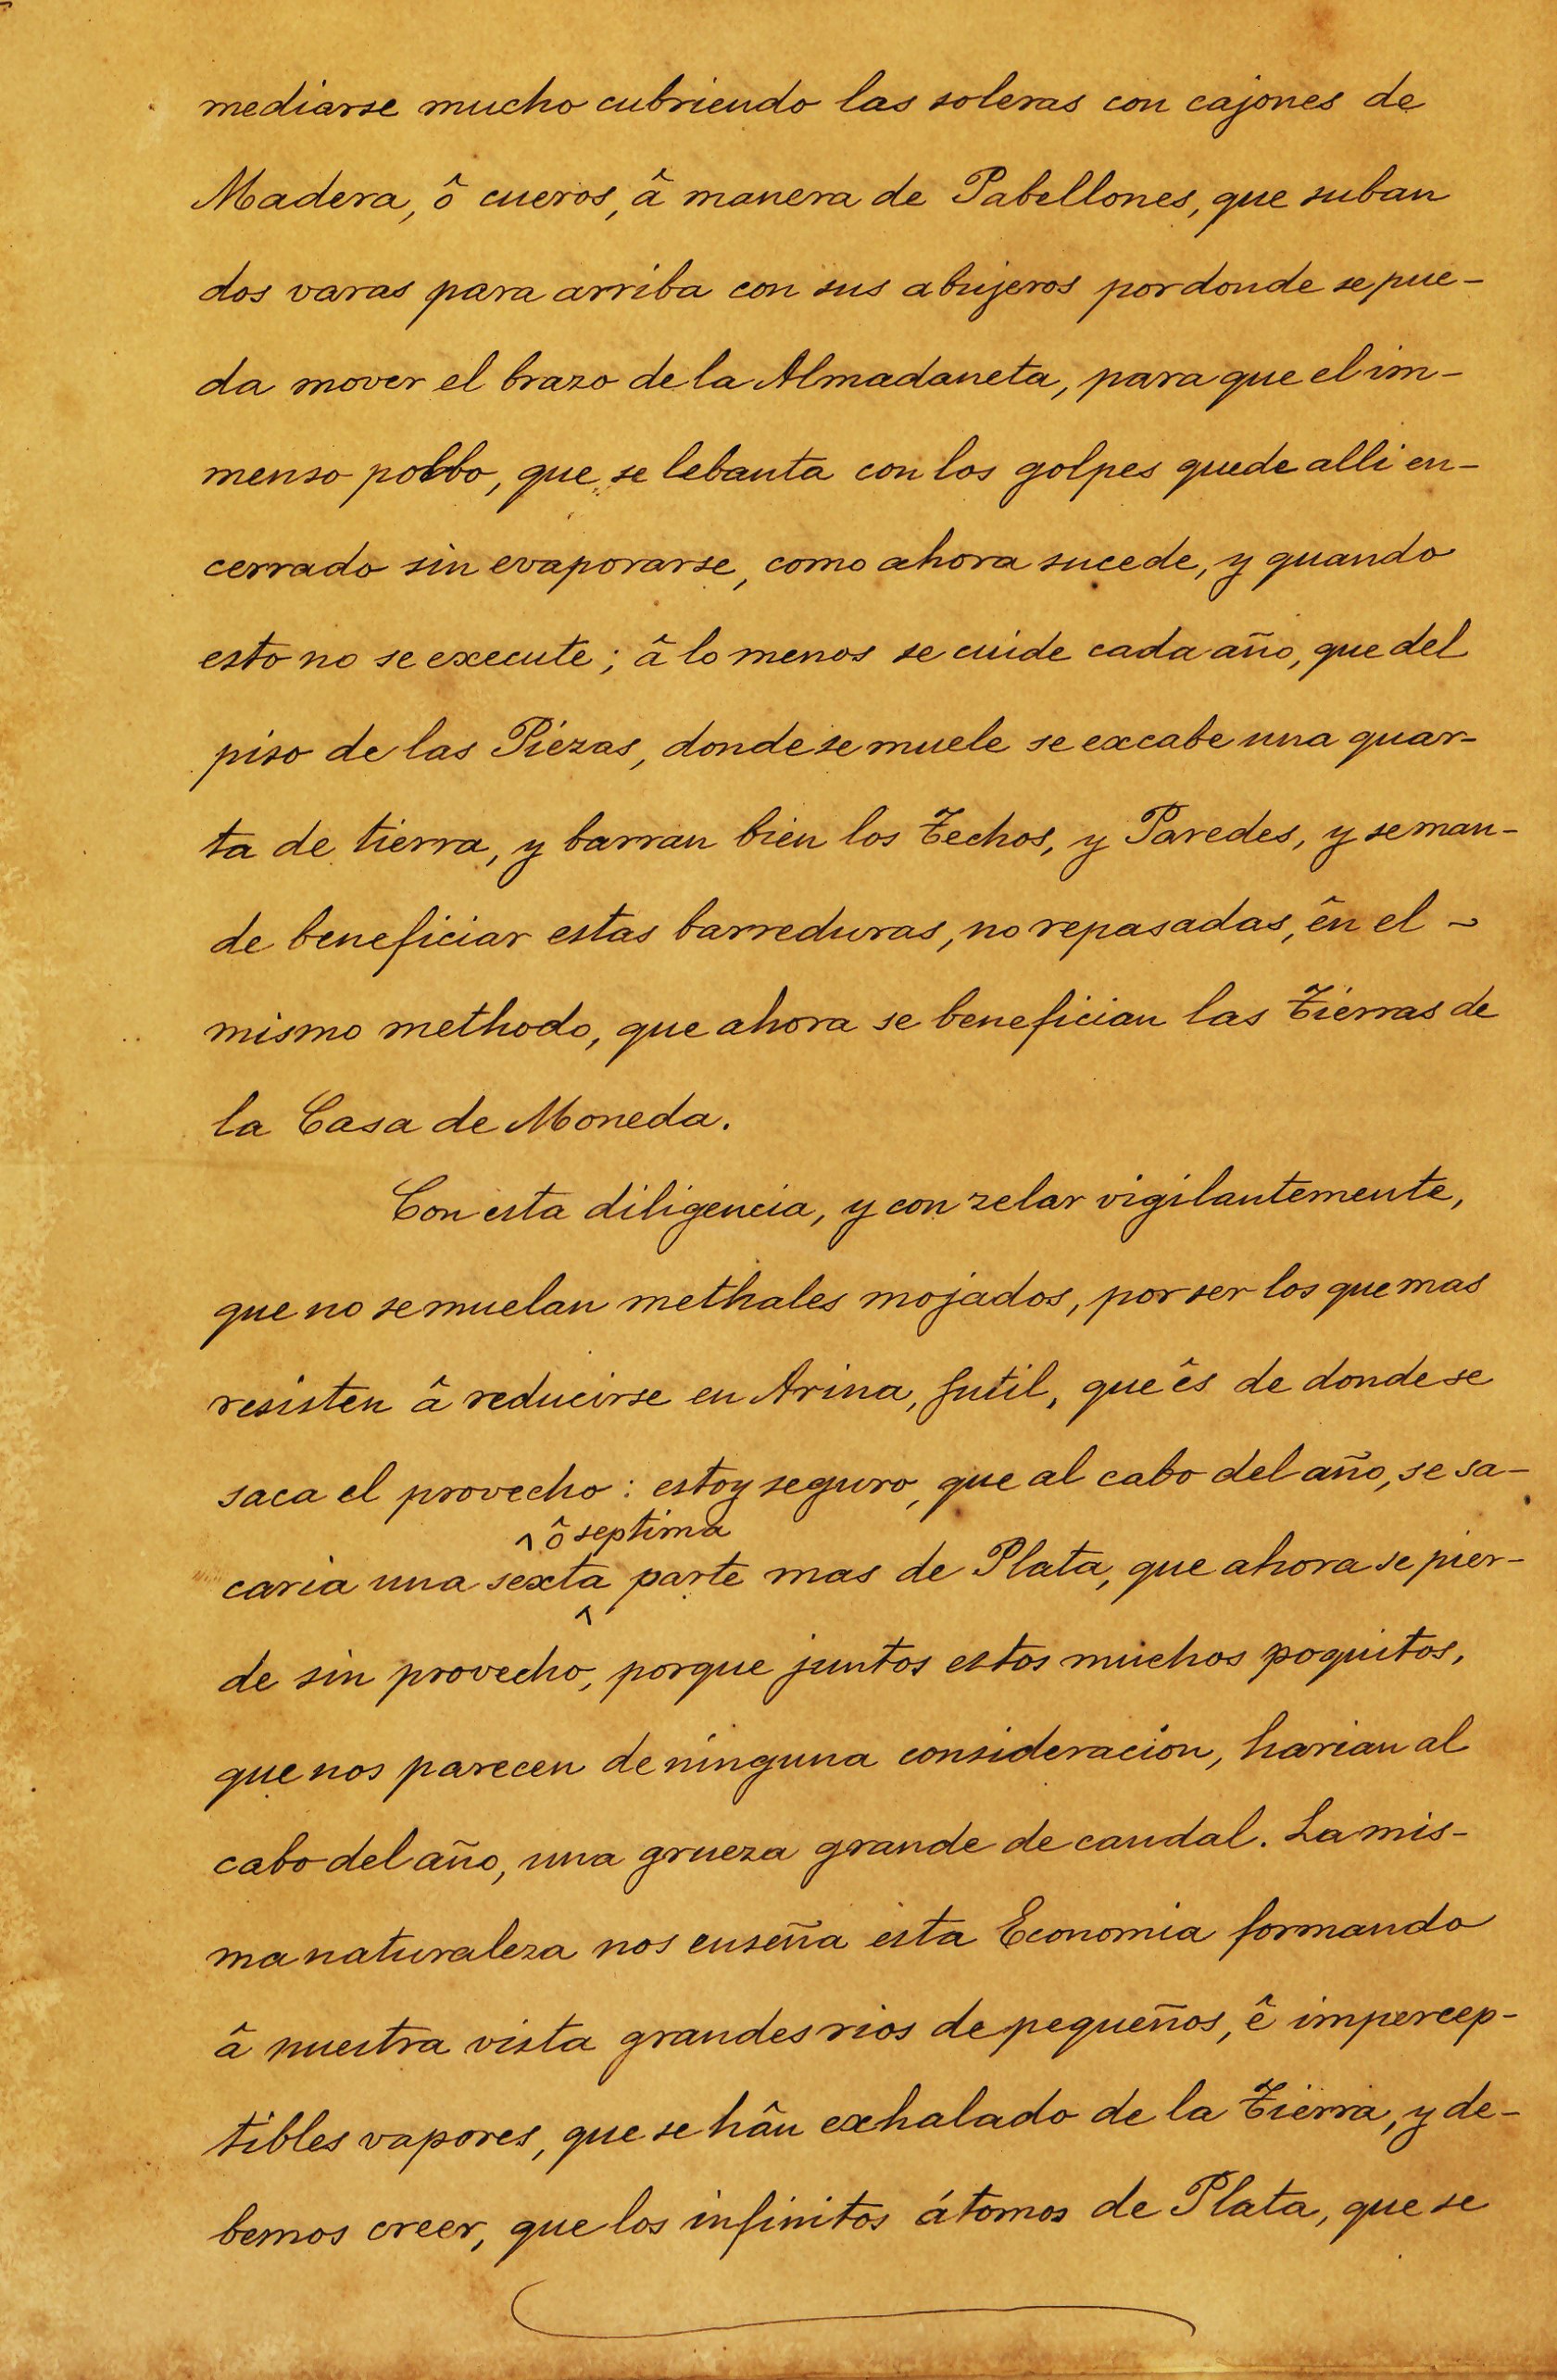 mediarse mucho cubriendo las soleras con cajones de
Madera, ô cueros, â manera de Pabellones, que suban
dos varas para arriba con sus abujeros por donde se pue-
da mover el brazo de la Almadaneta, para que el im-
menso polbo, que se lebanta con los golpes quede alli en-
cerrado sin evaporarse, como ahora sucede, y quando
esto no se execute; â lo menos se cuide cada año, que del
piso de las Piezas, donde se muele se excabe una quar-
ta de tierra, y barran bien los Techos, y Paredes, y se man-
de beneficiar estas barreduras, no repasadas, ên el -
mismo methodo, que ahora se benefician las Tierras de
la Casa de Moneda.
Con esta diligencia, y con zelar vigilantemente,
que no se muelan methales mojados, por ser los que mas
resisten â reducirse en Arina, futil, que ês de donde se
saca el provecho: estoy seguro, que al cabo del año, se sa-
^ ô septima
caria una sexta parte mas de Plata, que ahora se pier-
^
de sin provecho, porque juntos estos muchos poquitos,
que nos parecen de ninguna consideración, harian al
cabo del año, una grueza grande de caudal. La mis-
ma naturaleza nos enseña esta Economia formando
â nuestra vista grandes rios de pequeños, ê impercep-
tibles vapores, que se hân exhalado de la Tierra, y de-
bemos creer, que los infinitos átomos de Plata, que se